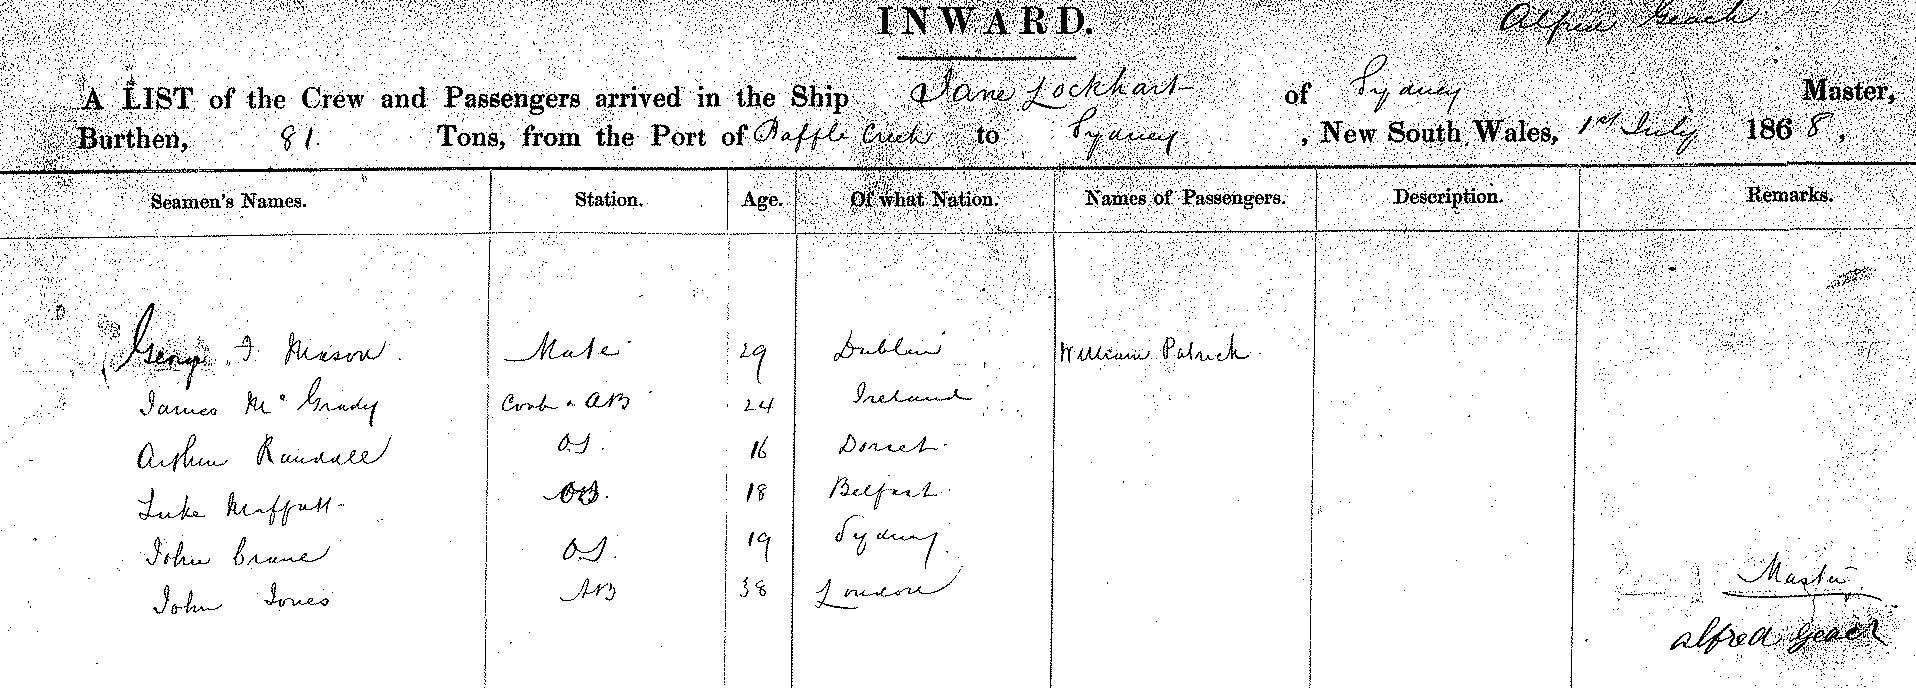 INWARD.
Alfred Geach
A LIST of the Crew and Passengers arrived in the Ship Jane Lockhart of Sydney Master,
Burthen, 81 Tons, from the Port of Baffle Creek to Sydney, New South Wales, 1st July 1868,
Seamen's Names. Station. Age. Of what Nation. Names of Passengers. Description. Remarks.
George J Mason. Mate 29 Dublin William Patrick
James McGrady Cook & AB 24 Ireland
Arthur Randall OS. 16 Dorset
Luke Moffatt 18 Belfast
John Crane OS. 19 Sydney
John Jones AB 38 London
Master
Alfred Geach